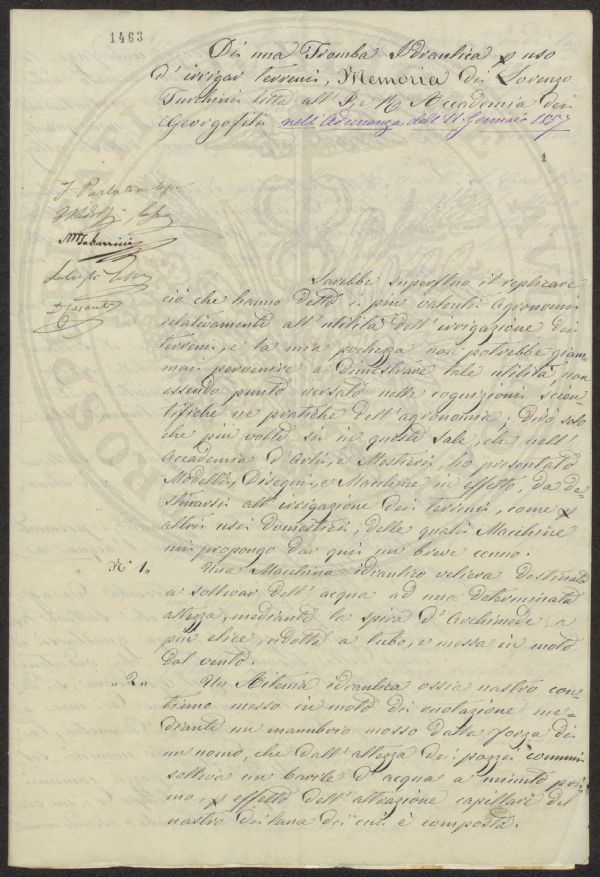 1463
Di una Tromba Idraulica p uso
d'irrigar terreni, Memoria di Lorenzo
Turchini letta all'I. e R. Accademia dei
Georgofili nell'Adunanza dell'11 Gennaio 1857
1
Sarebbe superfluo il replicare
ciò che hanno detto i più valenti Agronomi
relativamente all'utilità dell'irrigazione dei
terreni, e la mia pochezza non potrebbe giam-
mai pervenire a dimostrare tale utilità, non
essendo punto versato nelle cognizioni scien-
tifiche ne pratiche dell'agronomia; dirò solo
che più volte sì in queste Sale, che nell'
Accademia d'Arti, e Mestieri, ho presentato
Modelli, Disegni, e Macchine in effetto, da de-
stinarsi all'irrigazione dei terreni, come p
altri usi domestici, delle quali Macchine
mi propongo dar quì un breve cenno.
N° 1„ Una Macchina idraulico veliera destinata
a sollevar dell'acqua ad una determinata
altezza, mediante la spira d'Archimede, a
più elice, ridotta a tubo, e messa in moto
dal vento.
„2„ Un Sistema idraulico ossia nastro con-
tinuo messo in moto di rotazione me-
diante un manubrio mosso dalla forza di
un uomo, che dall'altezza dei pozzi comuni
solleva un barile d'acqua a minuto pri-
mo, p effetto dell'attrazione capillare del
nastro di lana di cui è composto.